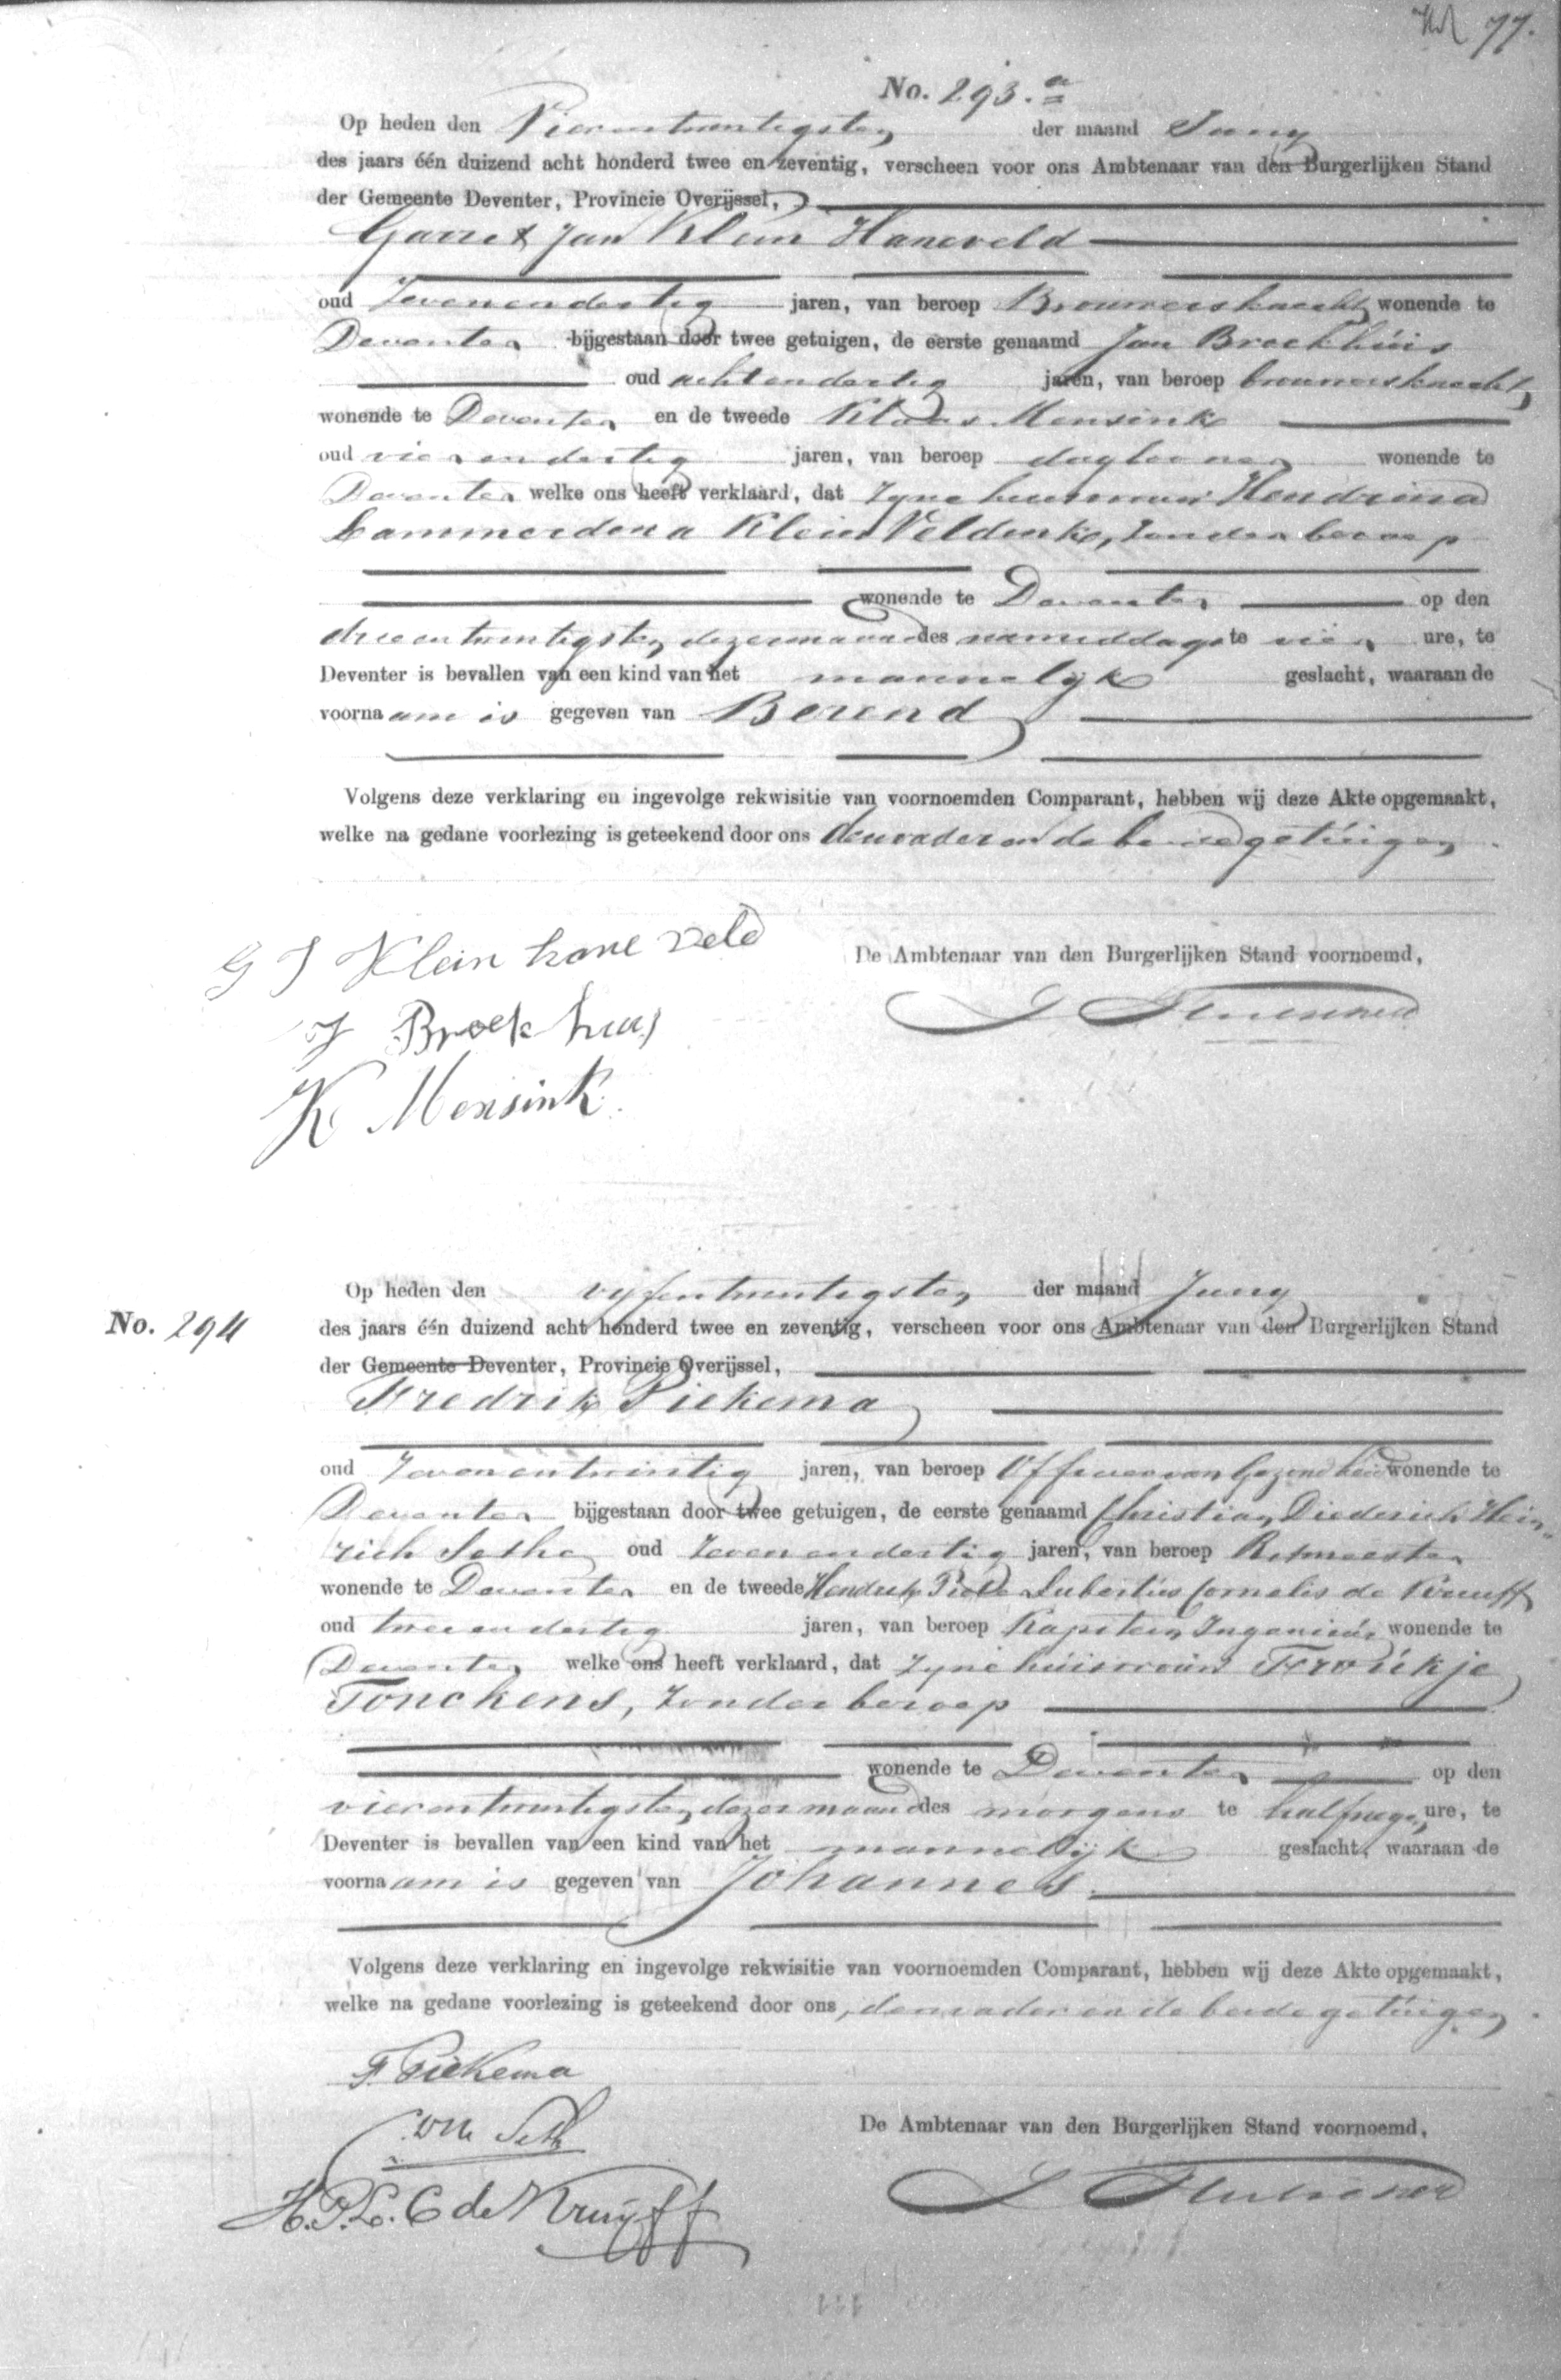 77.
No. 293.a
Op heden den Vierentwintigsten der maand Juny
des jaars één duizend acht honderd twee en zeventig, verscheen voor ons Ambtenaar van den Burgerlijken Stand
der Gemeente Deventer, Provincie Overijssel,
Garrit Jan Klein Haneveld
oud Zevenendertig jaren, van beroep Brouwersknecht, wonende te
Deventer bijgestaan door twee getuigen, de eerste genaamd Jan Broekhuis
oud achtendertig jaren, van beroep brouwersknecht,
wonende te Deventer en de tweede Klaas Mensink
oud vierendertig jaren, van beroep daglooner wonende te
Deventer welke ons heeft verklaard, dat zyne huisvrouw Hendrina
Lammerdena Klein Veldink, zonder beroep
wonende te Deventer op den
drieentwintigsten dezer maand des namiddags te vier ure, te
Deventer is bevallen van een kind van het mannelyk geslacht, waaraan de
voornaam is gegeven van Berend
Volgens deze verklaring en ingevolge rekwisitie van voornoemden Comparant, hebben wij deze Akte opgemaakt,
welke na gedane voorlezing is geteekend door ons den vader en de beide getuigen.
G J Klein hane veld
De Ambtenaar van den Burgerlijken Stand voornoemd,
J Broekhuis
K Mensink.
Op heden den vyfentwintigsten der maand Juny
No. 294
des jaars één duizend acht honderd twee en zeventig, verscheen voor ons Ambtenaar van den Burgerlijken Stand
der Gemeente Deventer, Provincie Overijssel,
Fredrik Piekema
oud Zevenentwintig jaren, van beroep Officier van Gezondheid wonende te
Deventer bijgestaan door twee getuigen, de eerste genaamd Christian Diederich Hein-
rich Sethe oud Zevenendertig jaren, van beroep Ritmeester
wonende te Deventer en de tweede Hendrik Lubertus Cornelis de Kruijff
oud tweeendertig jaren, van beroep Kapitein Ingenieur wonende te
Deventer welke ons heeft verklaard, dat zyne huisvrouw Froukje
Tonckens, zonder beroep
wonende te Deventer op den
vierentwintigsten dezer maand des morgens te half negen ure, te
Deventer is bevallen van een kind van het mannelijk geslacht, waaraan de
voornaam is gegeven van Johannes.
Volgens deze verklaring en ingevolge rekwisitie van voornoemden Comparant, hebben wij deze Akte opgemaakt,
welke na gedane voorlezing is geteekend door ons, den vader en de beide getuigen.
F. Piekema
De Ambtenaar van den Burgerlijken Stand voornoemd,
H. P. L. C de Kruijff